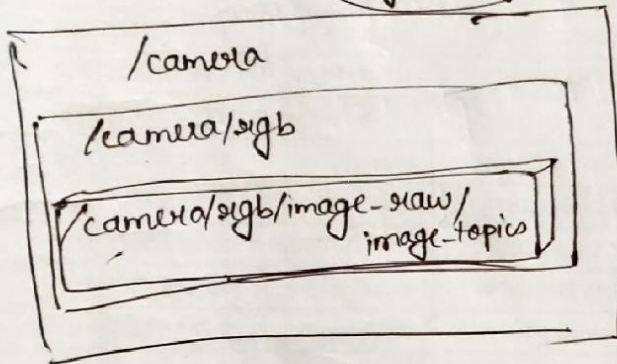 /camera
/camera/rgb
/camera/rgb/image-raw/
image-topics